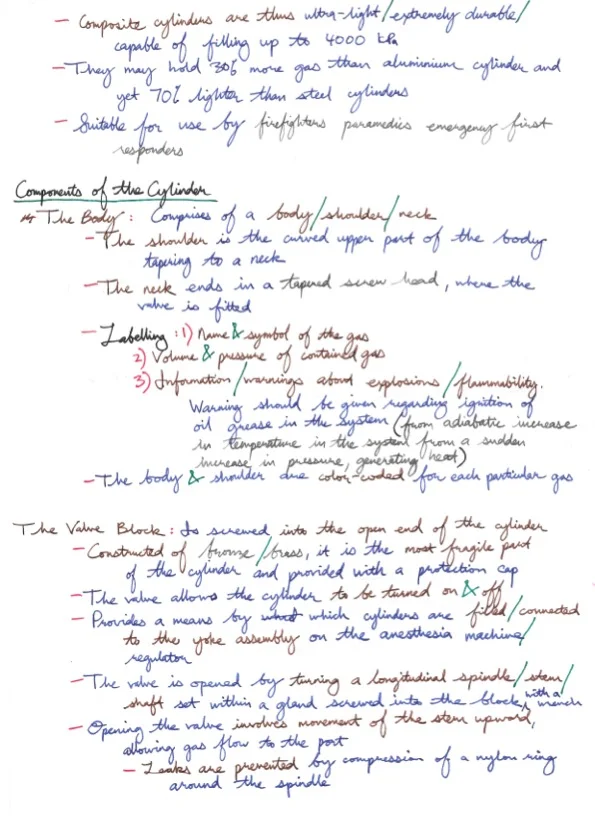 - Composite cylinders are thus ultra-light/extremely durable/
capable of filling up to 4000 kPa
- They may hold 30% more gas than aluminium cylinder and
yet 70% lighter than steel cylinders
- Suitable for use by firefighters paramedics emergency first
responders
Components of the Cylinder
The Body: Comprises of a body/shoulder/neck
- The shoulder is the curved upper part of the body
tapering to a neck
- The neck ends in a tapered screw head, where the
valve is fitted
- Labelling: 1) Name & symbol of the gas
2) Volume & pressure of contained gas
3) Information/warnings about explosions/flammability.
Warning should be given regarding ignition of
oil grease in the system (from adiabatic increase
in temperature in the system from a sudden
increase in pressure, generating heat)
- The body & shoulder are color-coded for each particular gas
The Valve Block: Is screwed into the open end of the cylinder
- Constructed of bronze/brass, it is the most fragile part
of the cylinder and provided with a protection cap
- The valve allows the cylinder to be turned on & off
- Provides a means by which cylinders are filled/connected
to the yoke assembly on the anesthesia machine/
regulator
- The valve is opened by turning a longitudinal spindle/stem/
shaft set within a gland screwed into the block, with a wrench
- Opening the valve involves movement of the stem upward,
allowing gas flow to the port
- Leaks are prevented by compression of a nylon ring
around the spindle